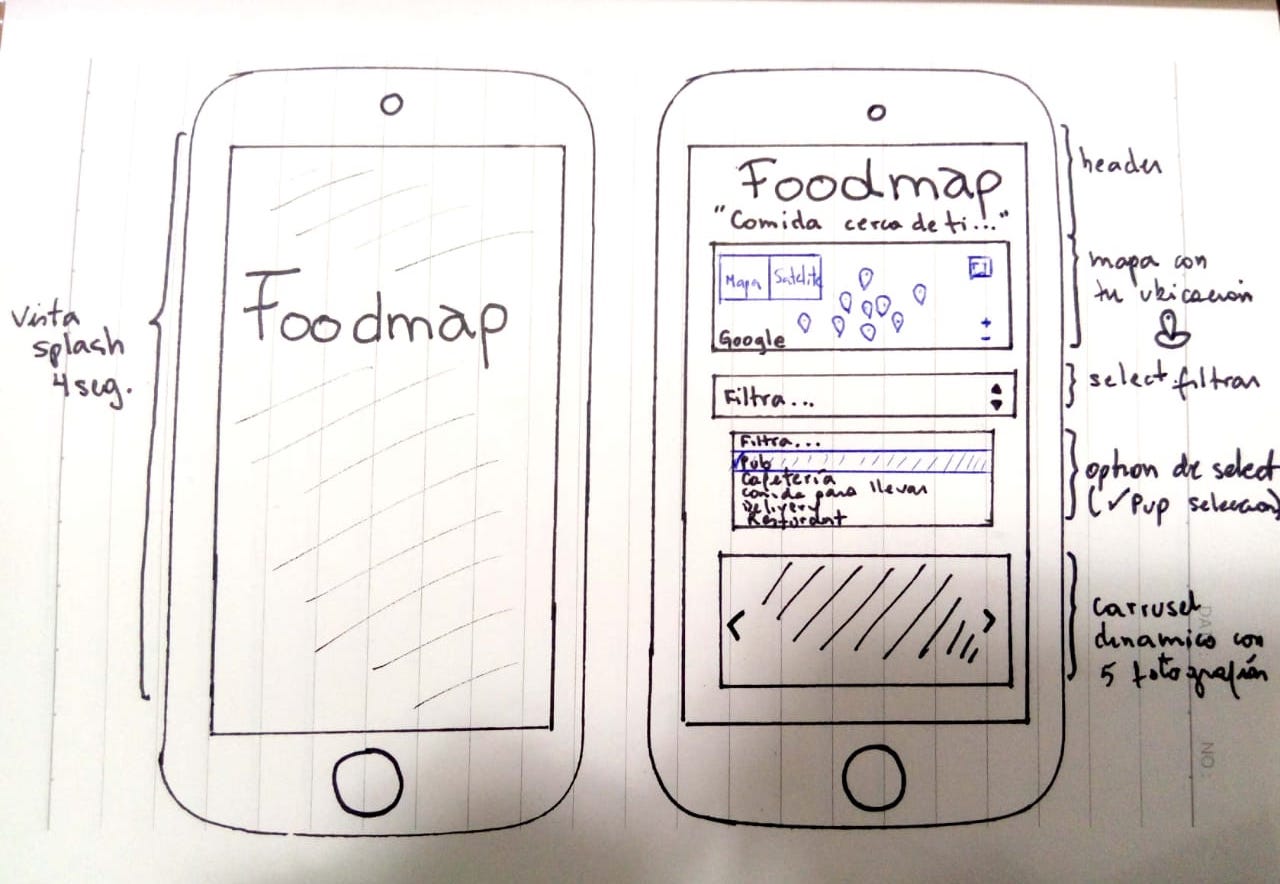 Vista
splash
4 seg.
Foodmap
Foodmap
"Comida cerca de ti..."
Mapa
Satelite
Google
+
-
Filtra...
Filtra...
✓Pub
Cafetería
comida para llevar
Delivery
Resturant
<
>
header
mapa con
tu ubicación
select filtrar
option de select
(✓Pup seleccion)
carrusel
dinamico con
5 fotografías
NO: